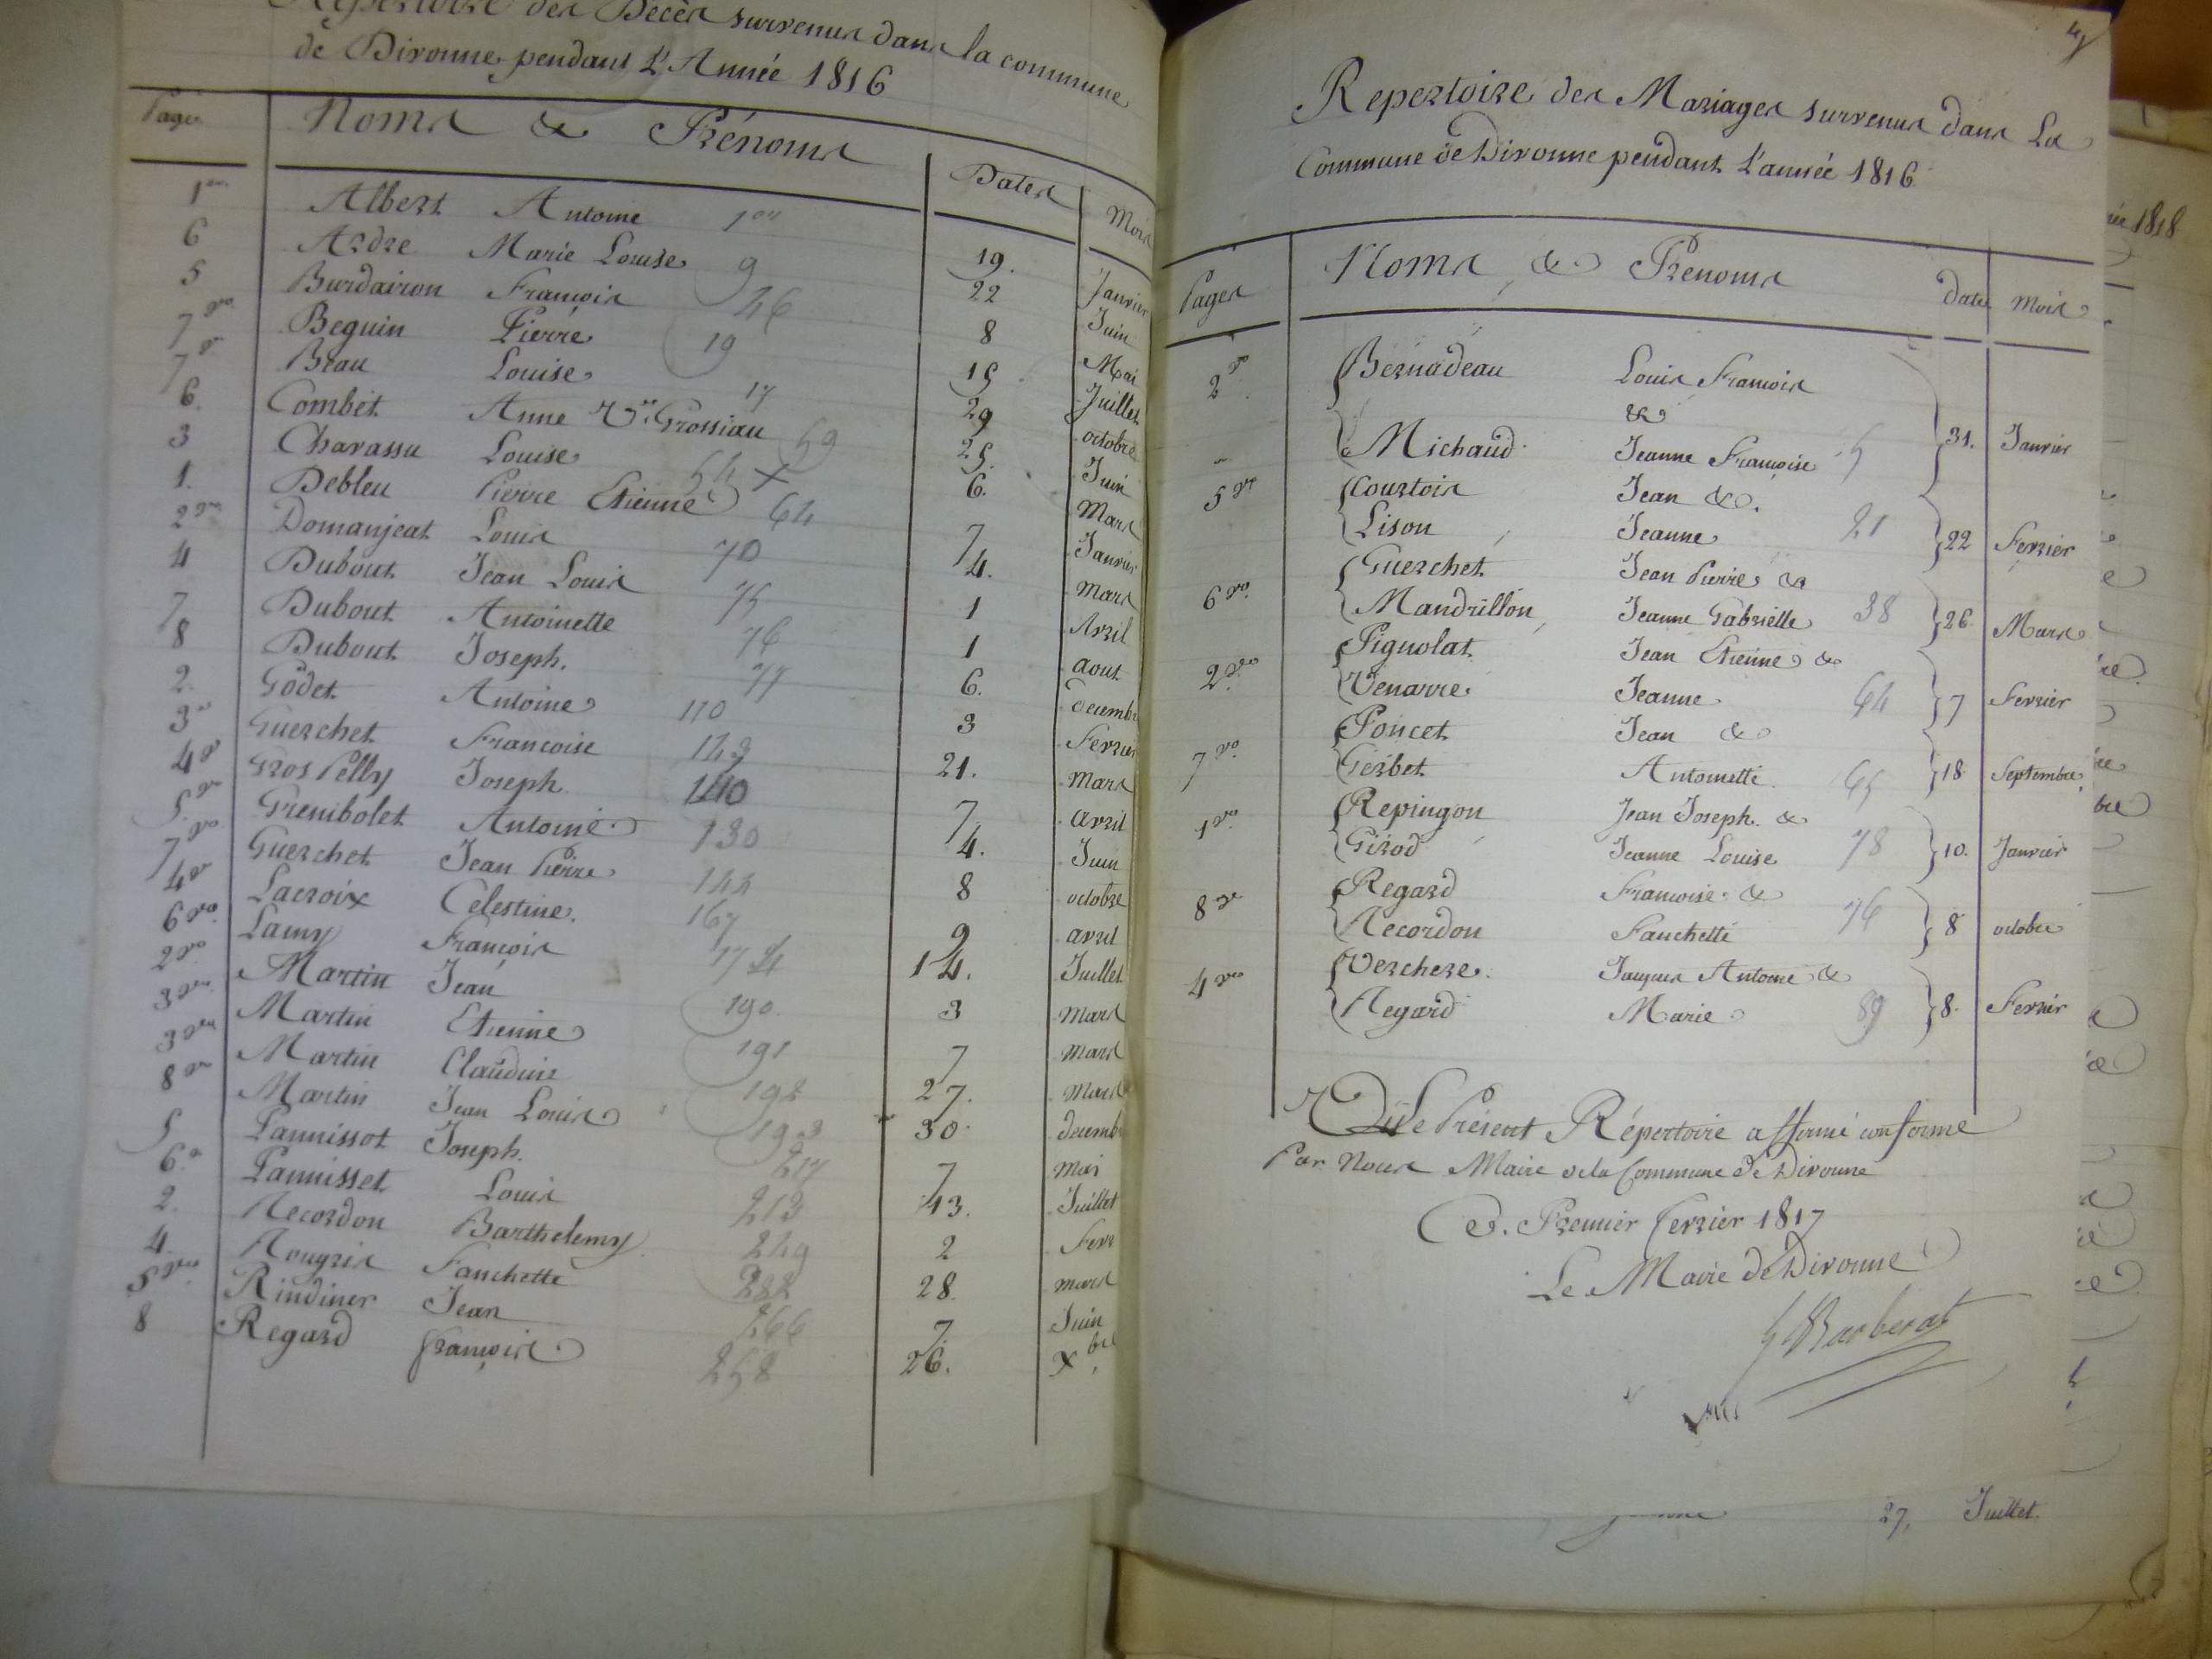 Repertoire des Décès survenus dans la commune
de Divonne pendant L'Année 1816
Page Noms & Prénoms Dates Mois
1er Albert Antoine 1er 19. Janvier
6 Ardre Marie Louise 9 22 Juin
5 Burdairon François 46 8 Mai
7 vo Beguin Pierre 19 15 Juillet
7 vo Beau Louise 17 29 octobre
6. Combet Anne Ve Grossiau 59 25. Juin
3 Charassu Louise 54 x 6. Mars
1. Debleu Pierre Etienne 64 7 Janvier
2 vo Domanjeat Louis 70 4. Mars
4 Dubout Jean Louis 75 1 Avril
7 Dubout Antoinette 76 1 aout
8 Dubout Joseph. 77 6. decembre
2. Godet Antoine 110 3 Fevrier
3 vo Guerchet Francoise 143 21. Mars
4 vo Gros Pelly Joseph 140 7 avril
5. vo Grembolet Antoine 130 4. Juin
7 vo Guerchet Jean Pierre 144 8 octobre
4 vo Lacroix Celestine. 167 9 avril
6 vo Lamy François 174 14. Juillet
2 vo Martin Jean 190. 3 Mars
3 vo Martin Etienne 191 7 Mars
3 vo Martin Claudine 192 27. Mars
8 vo Martin Jean Louis 193 30. decembre
5 Pannissot Joseph. 217 7 Mai
6. vo Pannisset Louis 213 13. Juillet
2. Recordon Barthelemy 249 2 Fevr
4. Rougris Fanchette 282 28. mars
5 vo Rindiner Jean 266 7. Juin
8 Regard François 258 26. Xbre
4
Repertoire des Mariages survenus dans La
Commune de Divonne pendant L'année 1816
Pages Noms & Prenoms date Mois
2 vo Bernadeau Louis François
&
Michaud Jeanne Françoise 5 31. Janvier
5 vo Courtois Jean &.
Lison Jeanne 21 22 Fevrier
Guerchet Jean Pierre &
6 vo Mandrillon Jeanne Gabrielle 38 26 Mars
Pignolat Jean Etienne &
2 vo Venarre Jeanne 64 7 Fevrier
Poncet Jean &
7 vo Gerbet Antoinette 65 18 Septembre
1 vo Repingon Jean Joseph &
Girod Jeanne Louise 78 10. Janvier
8 vo Regard Françoise &
Recordon Fanchette 76 8 octobre
4 vo Verchere Jaques Antoine &
Regard Marie 89 8. Fevrier
Vu Le Présent Répertoire affirmé conforme
Par Nous Maire de la Commune de Divonne
Ce. Premier fevrier 1817
Le Maire de Divonne
Barberat
27, Juillet
née 1818